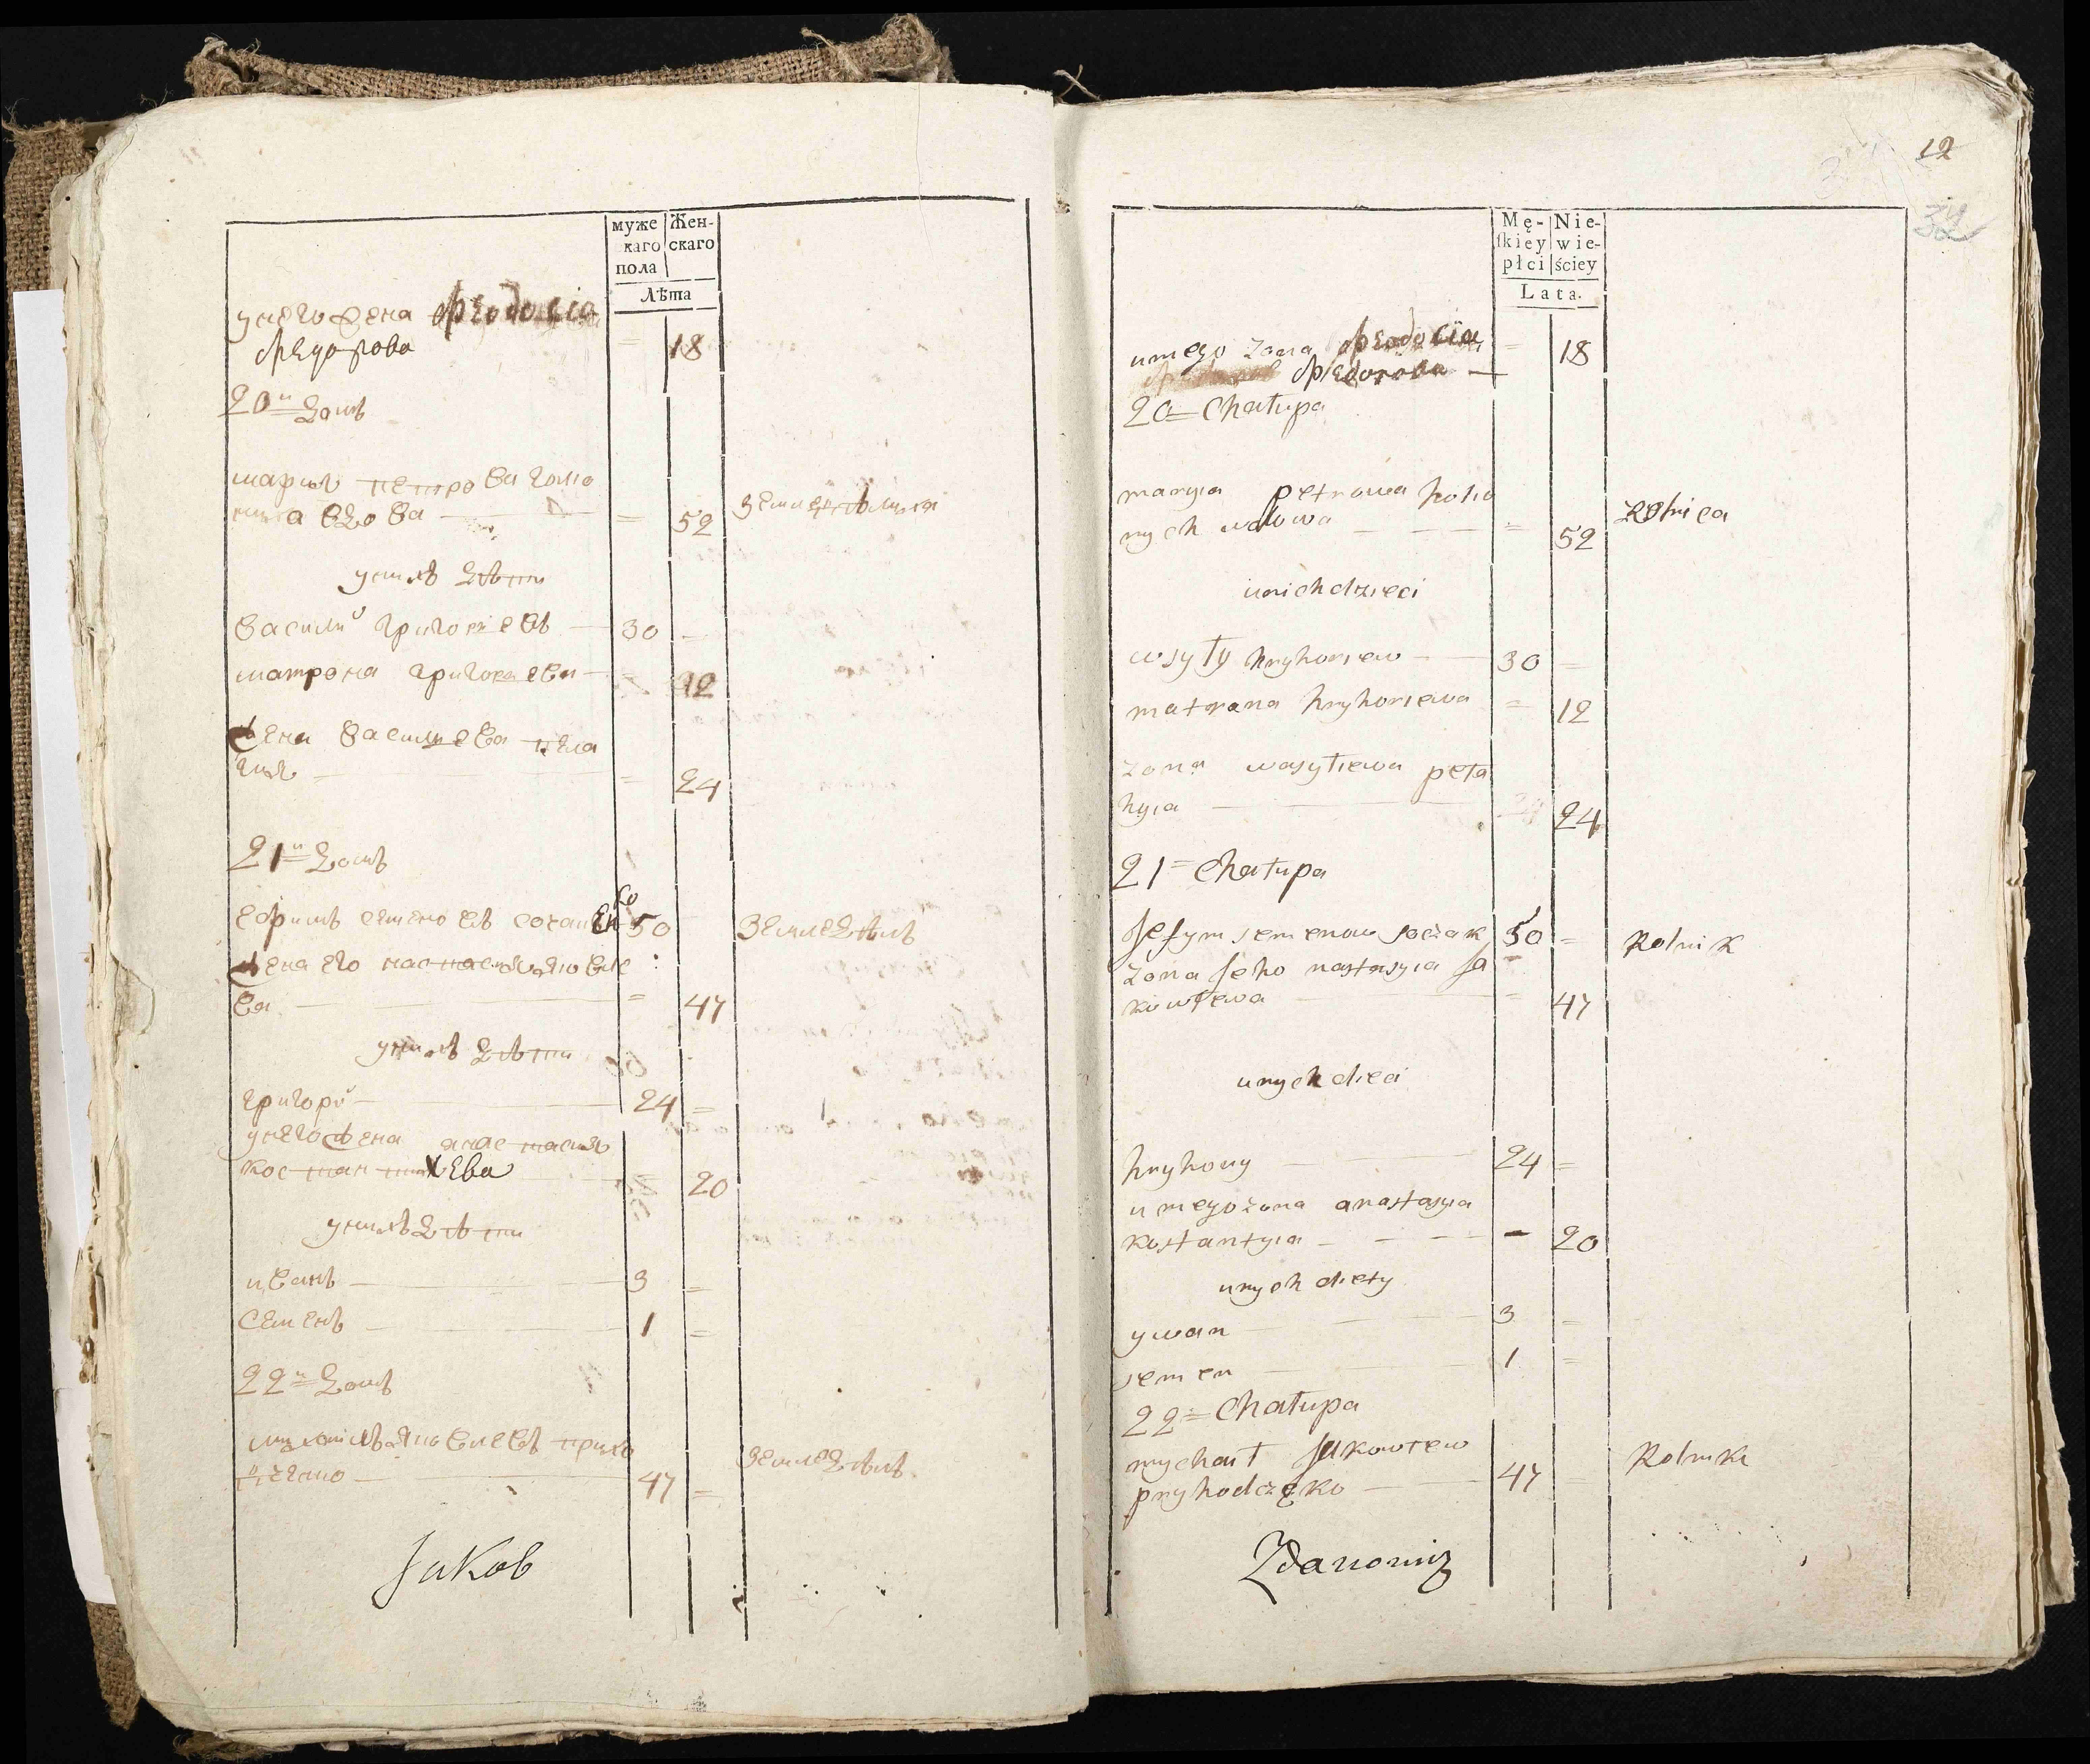 муже
каго
пола
Жен-
скаго
Лѣта
унего жена Феодосіа
Федорова = 18
20й Домъ
мариа петрова голо
вдова = 52
унихъ дѣти
Василий григориевъ 30
матрона григориева 12
жена Василиева пела
гия = 24
21й Домъ
ефимъ семеновъ сочаненко 50 Земледѣлъ
жена его настасия яковле
ва = 47
унихъ дѣти
григорий 24 =
унего жена анастасия
костантиева 20
унихъ дѣти
иванъ 3 =
Семенъ 1 =
22й Домъ
михайлъ яковлевъ прихо
47 = Земледѣлъ
Jakob
12
32
Mę-
ſkiey
płci
Nie-
wie-
ściey
Lata.
unego zona Феодосіа = 18
Федорова
20 = Chałupa
maryia petrowa holo
nych wdowa = 52 Rolnica
unich dzieci
wsyły hryhoriew 30 =
matrana hryhoriewa = 12
zona wasyliewa peła
hyia 24
21 = Chałupa
Jefym semenow soczak 50 = Rolnik
zona Jeho nastasyia Ja
kowlewa = 47
unych dieci
hryhory 24 =
unego żona anastasyia
kostantyia - 20
unych diety
ywan 3 =
semen 1 =
22 = Chałupa
mychaił Jakowlew
pryhodczęko 47 Rolnik
Zdanowicz